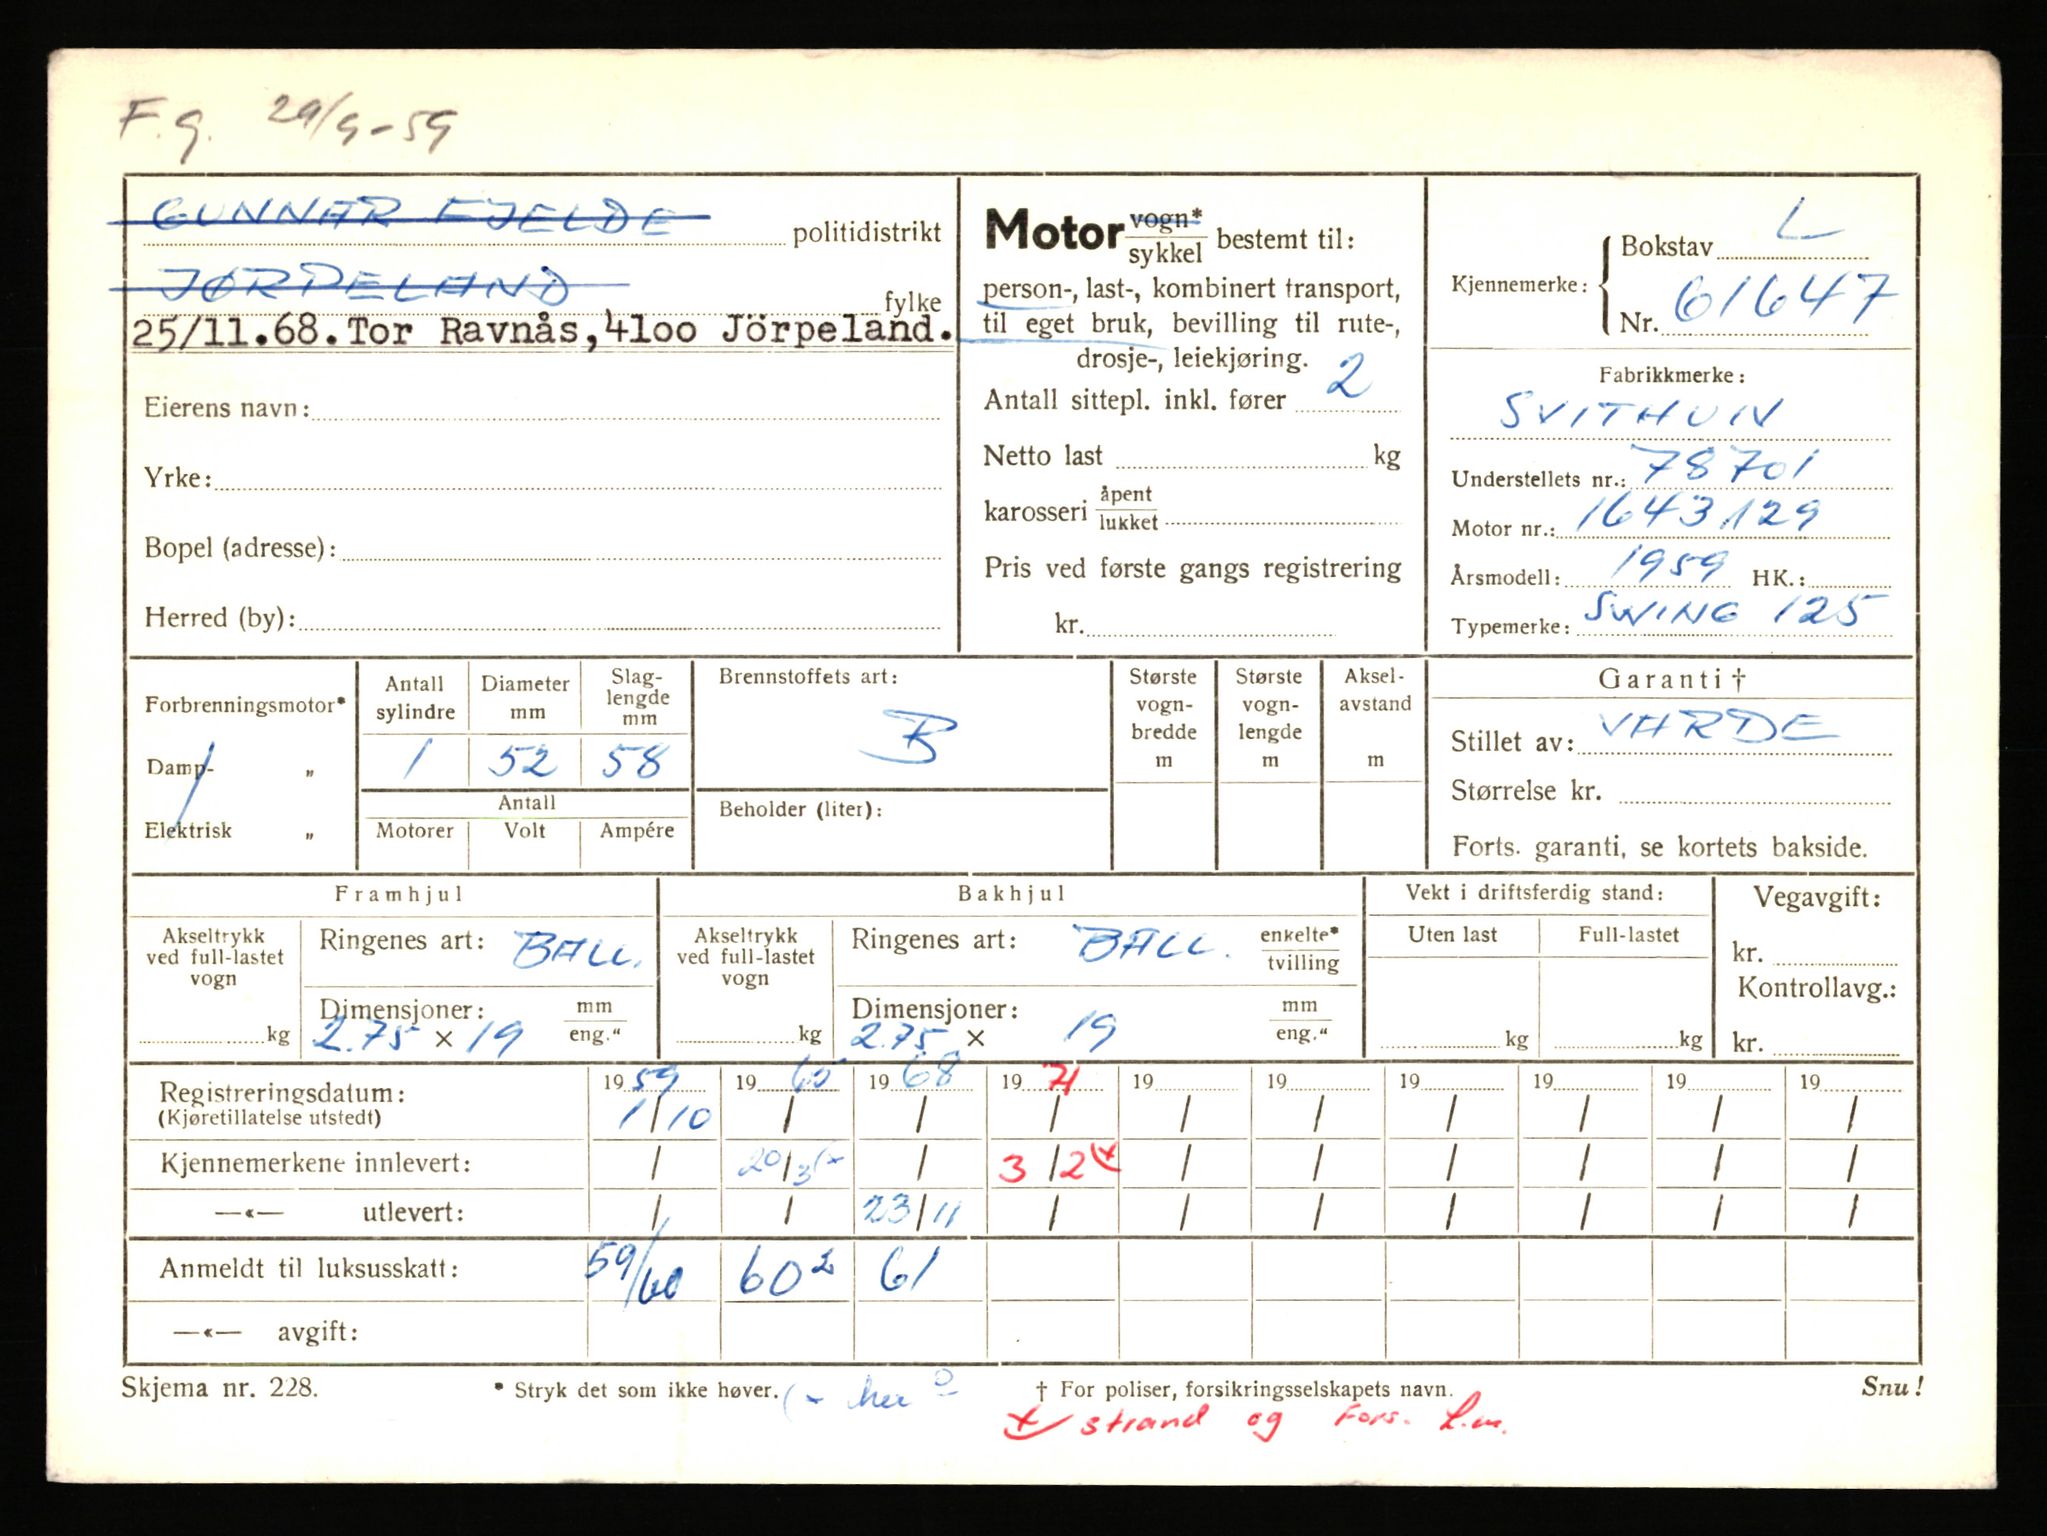 F.g. 29/9-59
GUNNAR FJELDE politidistrikt
JØRPELAND fylke
25/11.68.Tor Ravnås,4100 Jörpeland.
Eierens navn:
Yrke:
Bopel (adresse):
Herred (by):
Motor vogn* sykkel bestemt til:
person-, last-, kombinert transport,
til eget bruk, bevilling til rute-,
drosje-, leiekjøring.
Antall sittepl. inkl. fører 2
Netto last kg
karosseri åpent lukket
Pris ved første gangs registrering
kr.
Kjennemerke: Bokstav L
Nr. 61647
Fabrikkmerke:
SVITHUN
Understellets nr.: 78701
Motor nr.: 1643129
Årsmodell: 1959 HK.:
Typemerke: SWING 125
Forbrenningsmotor*
Damp- „
Elektrisk „
Antall sylindre Diameter mm Slaglengde mm
1 52 58
Antall
Motorer Volt Ampére
Brennstoffets art:
B
Beholder (liter):
Største vogn- bredde m
Største vogn- lengde m
Aksel- avstand m
Garanti †
Stillet av: VARDE
Størrelse kr.
Forts. garanti, se kortets bakside.
Framhjul
Akseltrykk ved full-lastet vogn kg
Ringenes art: BALL.
Dimensjoner: mm eng."
2.75 × 19
Bakhjul
Akseltrykk ved full-lastet vogn kg
Ringenes art: BALL. enkelte* tvilling
Dimensjoner: mm eng."
2.75 × 19
Vekt i driftsferdig stand:
Uten last Full-lastet
kg kg
Vegavgift:
kr.
Kontrollavg.:
kr.
Registreringsdatum: 19 59 19 65 19 68 19 71 19 19 19 19 19 19
(Kjøretillatelse utstedt) 1/10 / / / / / / / / /
Kjennemerkene innlevert: / 20/3 (x / 3/2 (x / / / / / /
—«— utlevert: / / 23/11 / / / / / / /
Anmeldt til luksusskatt: 59/60 60² 61
—«— avgift:
Skjema nr. 228.
* Stryk det som ikke høver. (x her
† For poliser, forsikringsselskapets navn.
Snu!
x) strand og Fors. L.m.